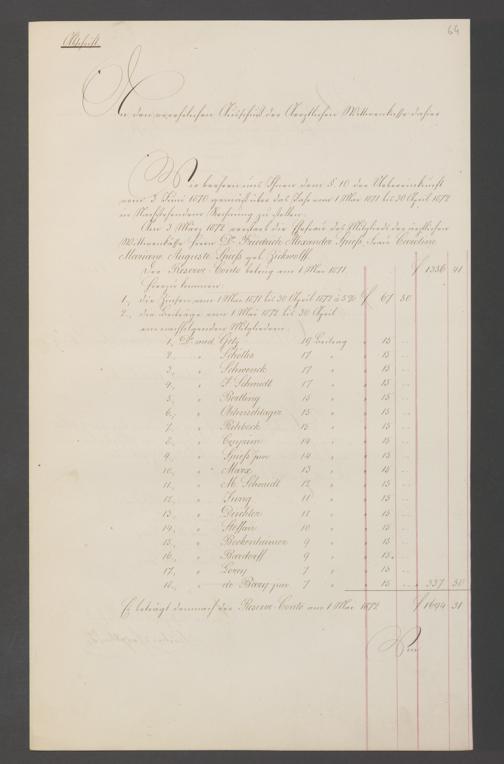 64
Abschrift.
An den verehrlichen Ausschuß der Aerztlichen Wittwenkasse dahier
Wir beehren uns Ihnen dem § 10 der Uebereinkunft
vom 3 Juni 1870 gemäß über das Jahr vom 1 Mai 1871 bis 30 April 1872
in Nachstehendem Rechnung zu stellen.
Am 3 März 1872 verstarb die Ehefrau des Mitglieds der ärztlichen
Wittwenkasse Herrn Dr. Friedrich Alexander Spieß, Frau Caroline
Mariane Auguste Spieß geb.
Der Reserve-Conto betrug am 1 Mai 1871. f 1336 41
Hierzu kommen:
1., die Zinsen vom 1 Mai 1871 bis 30 April 1872 à 5% f 67 50
2., die Beiträge vom 1 Mai 1872 bis 30 April
von nachfolgenden Mitgliedern:
1., Dr. med. Getz 19 Beitrag " 15 ..
2., " Schölles 17 " " 15 ..
3., " Schwenck 17 " " 15 ..
4., " S. Schmidt 17 " " 15 ..
5., " 15 " " 15 ..
6., " 15 " " 15 ..
7., " Rehbock 15 " " 15 ..
8., " 14 " " 15 ..
9., " Spieß jun 14 " " 15 ..
10., " Marx 13 " " 15 ..
11., " M. Schmidt 12 " " 15 ..
12., " Jung 11 " " 15 ..
13., " 11 " " 15 ..
14., " Steffan 10 " " 15 ..
15., " Bockenheimer 9 " " 15 ..
16., " Bardorff 9 " " 15 ..
17., " Lorey 7 " " 15 ..
18., " de Bary jun 7 " " 15 .. " 337 50
Es beträgt demnach der Reserve-Conto am 1 Mai 1872 f 1694 31
Wir